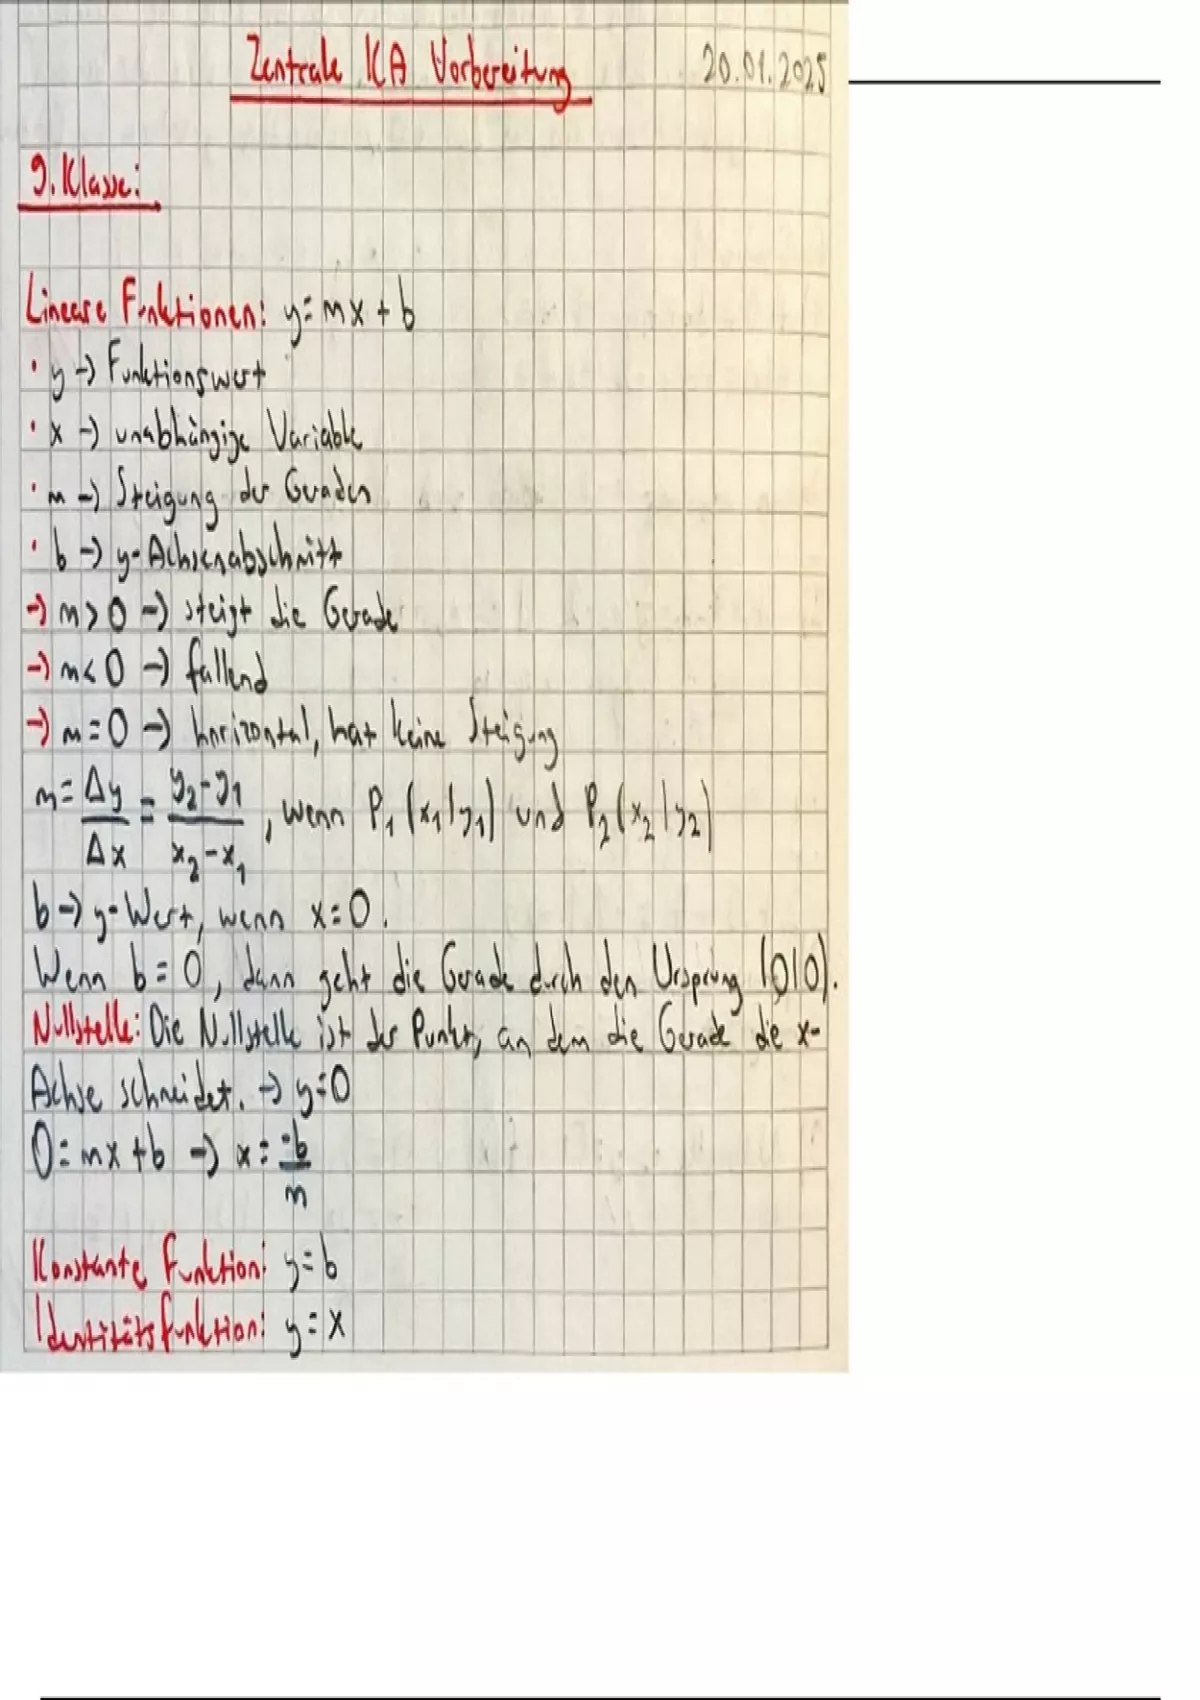 Zentrale KA Vorbereitung 20.01.2025
9. Klasse:
Lineare Funktionen: y = mx + b
• y -> Funktionswert
• x -> unabhängige Variable
• m -> Steigung der Geraden
• b -> y-Achsenabschnitt
-> m > 0 -> steigt die Gerade
-> m < 0 -> fallend
-> m = 0 -> horizontal, hat keine Steigung
m = Δy/Δx = y₂-y₁/x₂-x₁, wenn P₁(x₁|y₁) und P₂(x₂|y₂)
b -> y-Wert, wenn x = 0.
Wenn b = 0, dann geht die Gerade durch den Ursprung (0|0).
Nullstelle: Die Nullstelle ist der Punkt, an dem die Gerade die x-
Achse schneidet. -> y = 0
0 = mx + b -> x = -b/m
Konstante Funktion: y = b
Identitätsfunktion: y = x